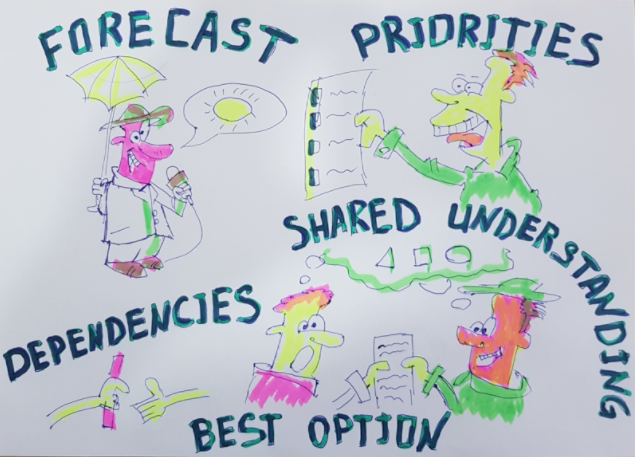 FORECAST
PRIORITIES
SHARED UNDERSTANDING
DEPENDENCIES
BEST OPTION